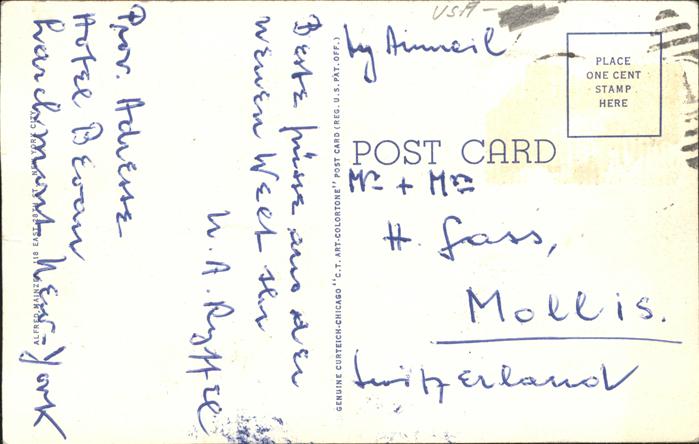 USA-
by Airmail
PLACE
ONE CENT
STAMP
HERE
POST CARD
Mr + Mrs
H. Gass,
Mollis.
Switzerland
Beste Grüsse aus der
neuen Welt Ihr
W. A. Ryffel
Prov. Adresse
Hotel Bevan
Larchmont New-York
GENUINE CURTEICH-CHICAGO "C.T. ART-COLORTONE" POST CARD (REG. U.S. PAT. OFF.)
ALFRED MAINZER, 118 EAST 28TH ST., NEW YORK CITY